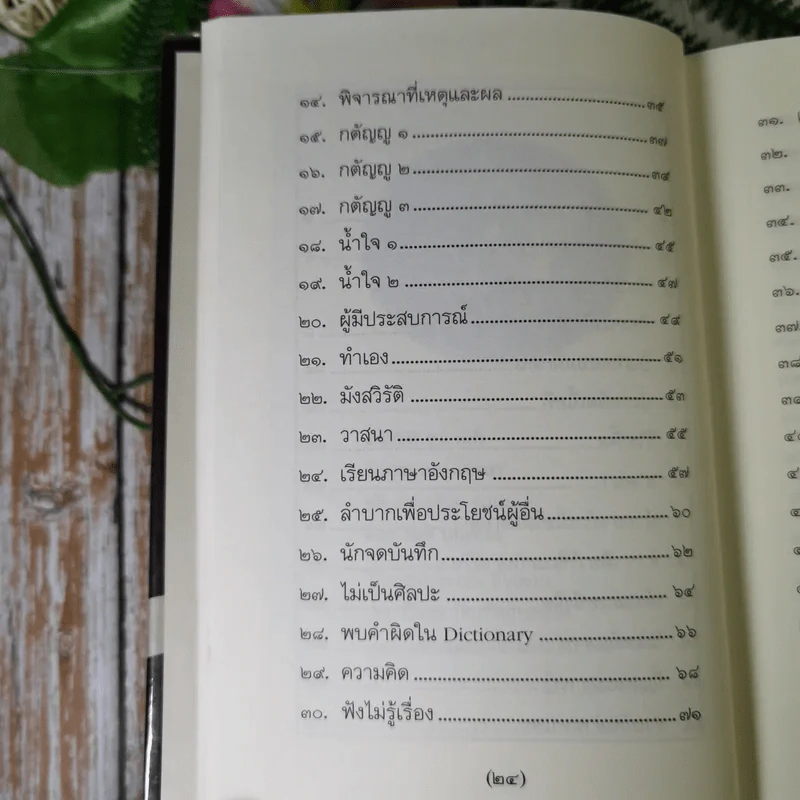 ๑๔. พิจารณาที่เหตุและผล ........................ ๓๕
๑๕. กตัญญู ๑ ........................ ๓๗
๑๖. กตัญญู ๒ ........................ ๓๙
๑๗. กตัญญู ๓ ........................ ๔๒
๑๘. น้ำใจ ๑ ........................ ๔๕
๑๙. น้ำใจ ๒ ........................ ๔๗
๒๐. ผู้มีประสบการณ์ ........................ ๔๙
๒๑. ทำเอง ........................ ๕๑
๒๒. มังสวิรัติ ........................ ๕๓
๒๓. วาสนา ........................ ๕๕
๒๔. เรียนภาษาอังกฤษ ........................ ๕๗
๒๕. ลำบากเพื่อประโยชน์ผู้อื่น ........................ ๖๐
๒๖. นักจดบันทึก ........................ ๖๒
๒๗. ไม่เป็นศิลปะ ........................ ๖๔
๒๘. พบคำผิดใน Dictionary ........................ ๖๖
๒๙. ความคิด ........................ ๖๘
๓๐. ฟังไม่รู้เรื่อง ........................ ๗๑
(๒๔)
๓๑.
๓๒.
๓๓.
๓๔.
๓๕.
๓๖.
๓๗.